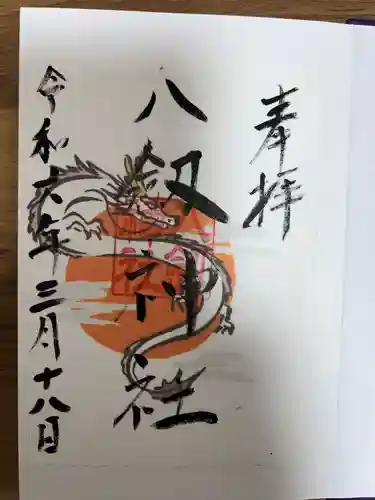 奉拝
八釼神社
令和六年三月十八日